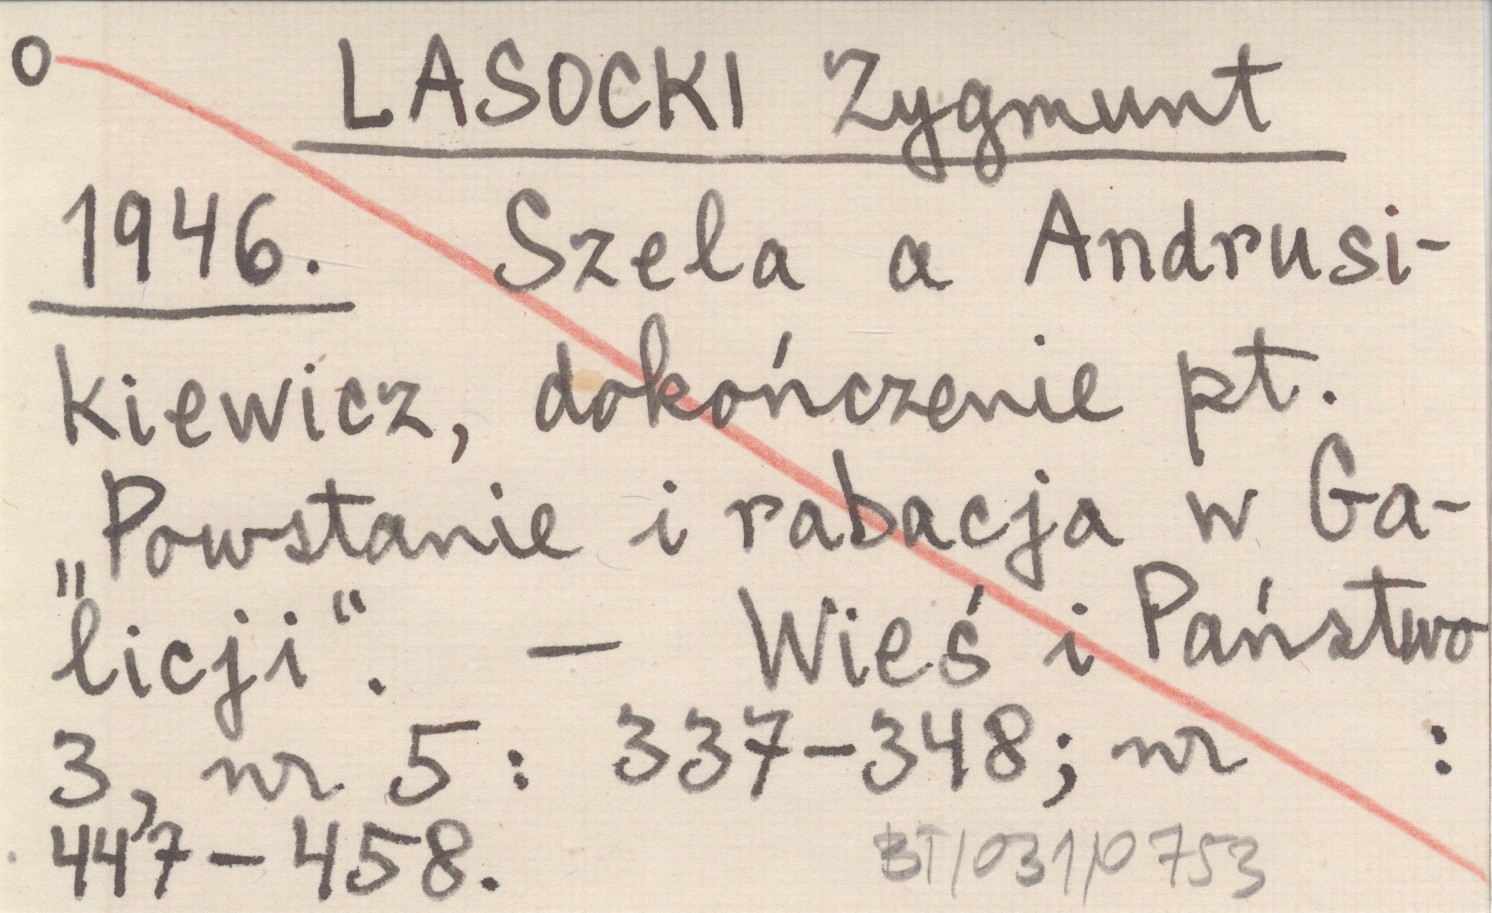 O LASOCKI Zygmunt
1946. Szela a Andrusi-
kiewicz, dokończenie pt.
„Powstanie i rabacja w Ga-
licji“. — Wieś i Państwo
3, nr 5: 337-348; nr :
447-458. BT/031/0753